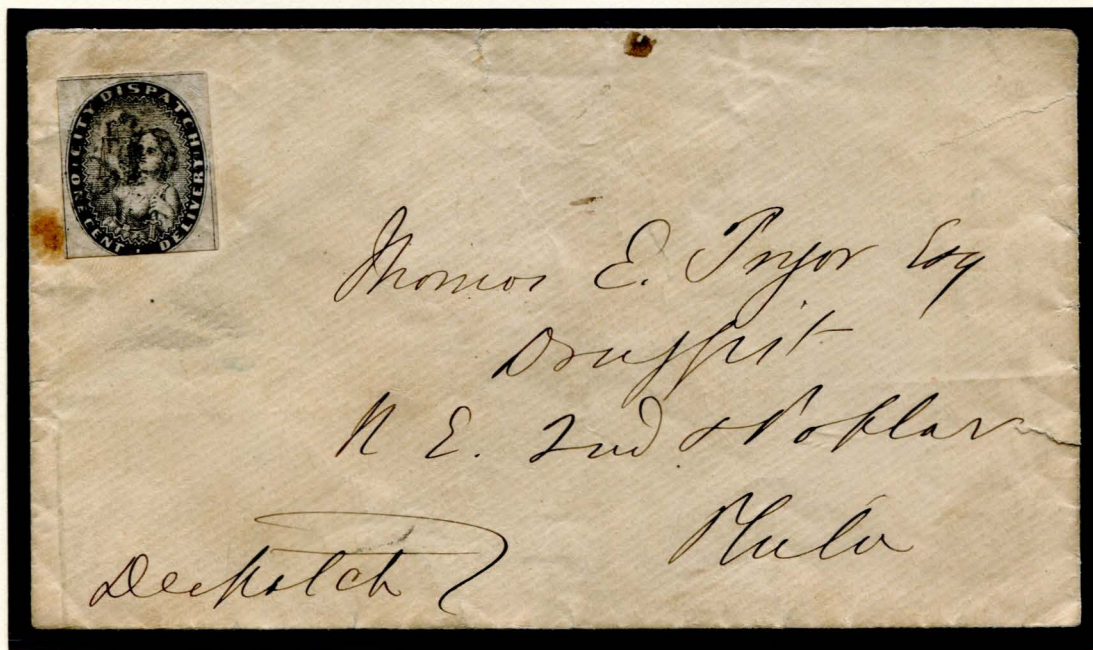 CITY DISPATCH DELIVERY
ONE CENT
Thomas E. Pryor Esq
Druggist
N E. 2nd & Poplar
Phila
Despatch